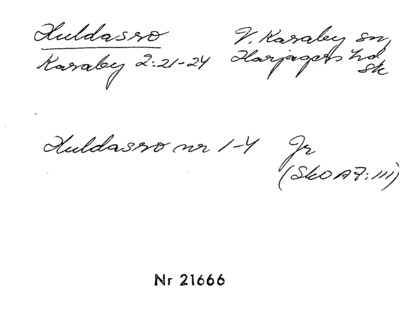 Huldasro V. Karaby sn,
Karaby 2:21-24 Harjagers hd
Sk
Huldasro nr 1-4 Jr
(SkO A7:III)
Nr 21666